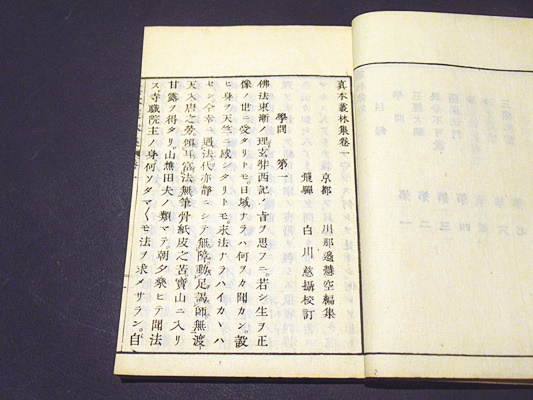 真本叢林集卷一
京都 川那邊慧空編集
飛驒 白川慈攝校訂
學問 第一
佛法東漸ノ理玄弉西記ノ旨ヲ思フニ。若シ生ヲ正
像ノ世ニ受タリトモ。日域ナラハ何ヲカ聞カン。設
ヒ身ヲ天竺ニ感シタリトモ。末法ナラハイカヽハ
セン。今幸ニ遇法代亦静ニシテ無障動足講師無渡
天入唐之勞傾耳富法無筆骨紙皮之苦。寶山ニ入リ
甘露ヲ得タリ。山樵田夫ノ類マテ。朝夕榮ヒテ聞法
ス寺職院主ノ身何ソタマ〱モ法ヲ求メサラン。自